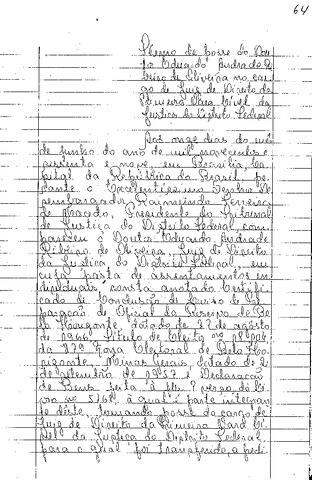 64
Termo de posse do Dou-
tor Eduardo Andrade Ri-
beiro de Oliveira no car-
go de Juiz de Direito da
Primeira Vara Cível da
Justiça do Distrito Federal
Aos onze dias do mês
de junho do ano de mil novecentos e
sessenta e nove, em Brasília, Ca-
pital da República do Brasil, pe-
rante o Excelentíssimo Senhor De-
sembargador Raimundo Ferreira
de Macedo, Presidente do Tribunal
de Justiça do Distrito Federal, com-
pareceu o Doutor Eduardo Andrade
Ribeiro de Oliveira, Juiz de Direito
da Justiça do Distrito Federal, em
cuja pasta de assentamentos in-
dividuais consta anotado Certifi-
cado de Conclusão de Curso de Pre-
paração de Oficial da Reserva de Be-
lo Horizonte, datado de 27 de agosto
de 1966, Título de Eleitor nº
da 27ª Zona Eleitoral de Belo Ho-
rizonte, Minas Gerais, datado de 2
de setembro de 1957 e Declaração
de Bens feita à fls. 7 verso do Li-
vro nº a qual é parte integran-
te dêste, tomando posse do cargo de
Juiz de Direito da Primeira Vara Cí-
vel da Justiça do Distrito Federal,
para o qual foi transferido, a pedi-